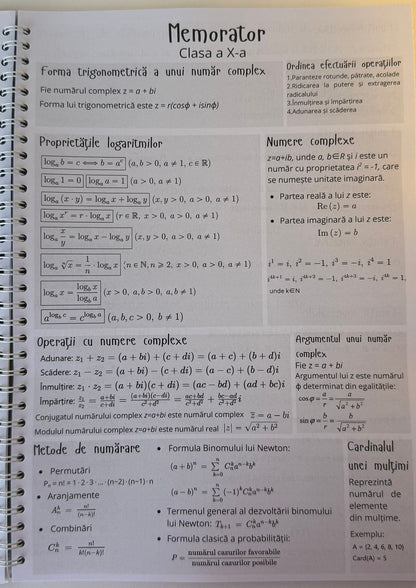 Memorator
Clasa a X-a
Forma trigonometrică a unui număr complex
Fie numărul complex z = a + bi
Forma lui trigonometrică este z = r(cosϕ + isinϕ)
Ordinea efectuării operațiilor
1.Paranteze rotunde, pătrate, acolade
2.Ridicarea la putere și extragerea
radicalului
3.Înmulțirea și împărțirea
4.Adunarea și scăderea
Proprietățile logaritmilor
logₐ b = c ⟺ b = aᶜ (a, b > 0, a ≠ 1, c ∈ ℝ)
logₐ 1 = 0 logₐ a = 1 (a > 0, a ≠ 1)
logₐ (x · y) = logₐ x + logₐ y (x, y > 0, a > 0, a ≠ 1)
logₐ xʳ = r · logₐ x (r ∈ ℝ, x > 0, a > 0, a ≠ 1)
logₐ x/y = logₐ x − logₐ y (x, y > 0, a > 0, a ≠ 1)
logₐ ⁿ√x = 1/n · logₐ x (n ∈ ℕ, n ⩾ 2, x > 0, a > 0, a ≠ 1)
logₐ x = log_b x / log_b a (x > 0, a, b > 0, a, b ≠ 1)
a^(log_b c) = c^(log_b a) (a, b, c > 0, b ≠ 1)
Numere complexe
z=a+ib, unde a, b∈R și i este un
număr cu proprietatea i² = -1, care
se numește unitate imaginară.
• Partea reală a lui z este:
Re (z) = a
• Partea imaginară a lui z este:
Im (z) = b
i¹ = i, i² = −1, i³ = −i, i⁴ = 1
i⁴ᵏ⁺¹ = i, i⁴ᵏ⁺² = −1, i⁴ᵏ⁺³ = −i, i⁴ᵏ = 1,
unde k∈N
Operații cu numere complexe
Adunare: z₁ + z₂ = (a + bi) + (c + di) = (a + c) + (b + d)i
Scădere: z₁ − z₂ = (a + bi) − (c + di) = (a − c) + (b − d)i
Înmulțire: z₁ · z₂ = (a + bi)(c + di) = (ac − bd) + (ad + bc)i
Împărțire: z₁/z₂ = (a+bi)/(c+di) = (a+bi)(c−di)/(c²+d²) = (ac+bd)/(c²+d²) + (bc−ad)/(c²+d²) i
Conjugatul numărului complex z=a+bi este numărul complex z̅ = a − bi
Modulul numărului complex z=a+bi este numărul real |z| = √(a² + b²)
Argumentul unui număr
complex
Fie z = a + bi
Argumentul lui z este numărul
ϕ determinat din egalitățile:
cos φ = a/r = a/√(a² + b²)
sin φ = b/r = b/√(a² + b²)
Metode de numărare
• Permutări
Pₙ = n! = 1 · 2 · 3 · ... · (n−2) ·(n−1) ·n
• Aranjamente
Aₙᵏ = n!/(n−k)!
• Combinări
Cₙᵏ = n!/(k!(n−k)!)
• Formula Binomului lui Newton:
(a + b)ⁿ = Σₖ₌₀ⁿ Cₙᵏaⁿ⁻ᵏbᵏ
(a − b)ⁿ = Σₖ₌₀ⁿ (−1)ᵏCₙᵏaⁿ⁻ᵏbᵏ
• Termenul general al dezvoltării binomului
lui Newton: Tₖ₊₁ = Cₙᵏaⁿ⁻ᵏbᵏ
• Formula clasică a probabilității:
P = numărul cazurilor favorabile / numărul cazurilor posibile
Cardinalul
unei mulțimi
Reprezintă
numărul de
elemente
din mulțime.
Exemplu:
A = {2, 4, 6, 8, 10}
Card(A) = 5